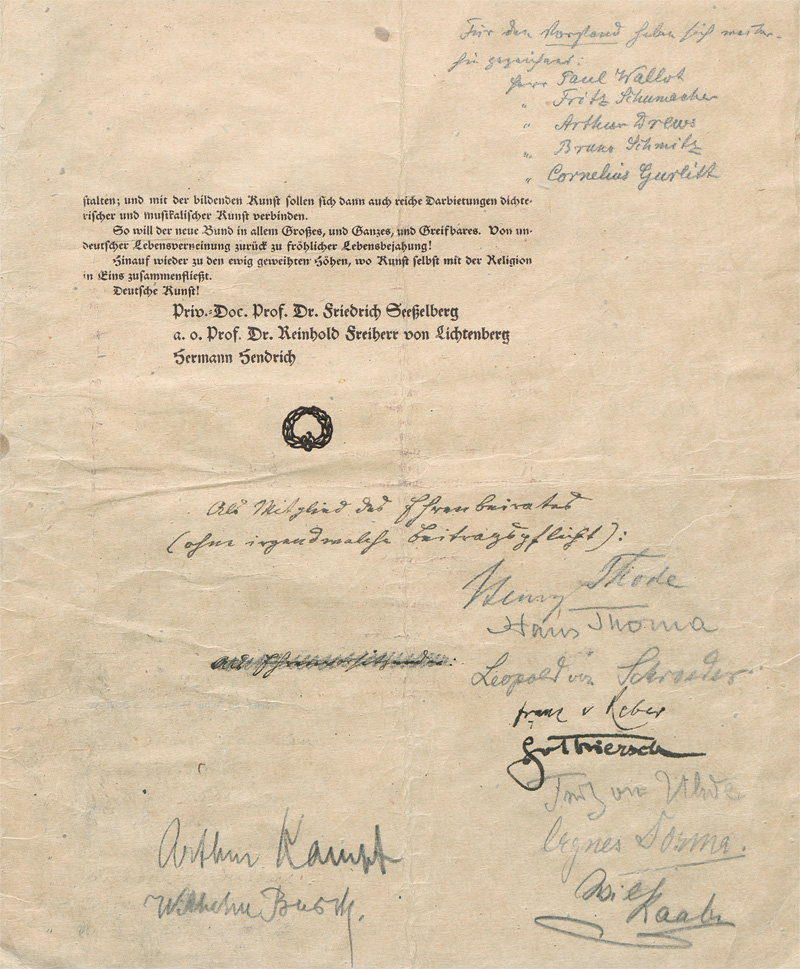 Für den Vorstand haben sich weiter-
hin gezeichnet:
Herr Paul Wallot
„ Fritz Schumacher
„ Arthur Drews
„ Bruno Schmitz
„ Cornelius Gurlitt
stalten; und mit der bildenden Kunst sollen sich dann auch reiche Darbietungen dichte-
rischer und musikalischer Kunst verbinden.
So will der neue Bund in allem Großes, und Ganzes, und Greifbares. Von un-
deutscher Lebensverneinung zurück zu fröhlicher Lebensbejahung!
Hinauf wieder zu den ewig geweihten Höhen, wo Kunst selbst mit der Religion
in Eins zusammenfließt.
Deutsche Kunst!
Priv.-Doc. Prof. Dr. Friedrich Seeßelberg
a. o. Prof. Dr. Reinhold Freiherr von Lichtenberg
Hermann Hendrich
Als Mitglied des Ehrenbeirates
(ohne irgendwelche Beitragspflicht):
Henry Thode
Hans Thoma
Leopold von Schroeder
franz v Reber
Fritz von Uhde
Agnes Sorma.
Arthur Kampf
Wilhelm Busch.
Wilh Raabe